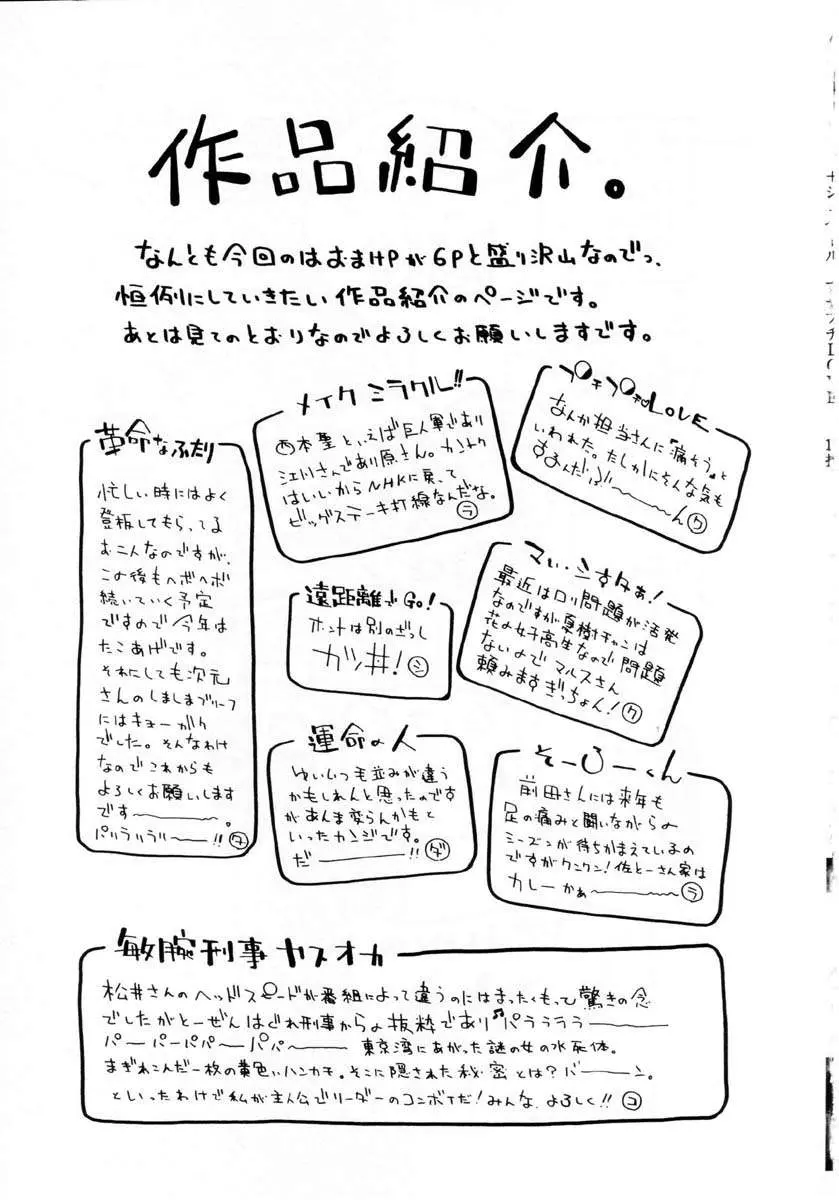 作品紹介。
なんとも今回のはおまけPが6Pと盛り沢山なのでっ、
恒例にしていきたい作品紹介のページです。
あとは見てのとおりなのでよろしくお願いしますです。
革命なふたり
忙しい時にはよく
登板してもらってる
おこんなのですが、
この後もヘボヘボ
続いていく予定
ですので今年は
たこあげです。
それにしても次元
さんのしましまブリーフ
にはキョーがく
でした。そんなわけ
なのでこれからも
よろしくお願いします
です――――。
パリラリラリ―――!! タ
メイクミラクル!!
西本聖といえば巨人軍であり
江川さんであり原さん。カントク
はいいからNHKに戻って
ビッグステーキ打線なんだな。
ラ
LOVE
なんか担当さんに『痛そう』と
いわれた。たしかにそんな気も
するんだぶ〜〜〜ん ク
遠距離でGO!
ホントは別のざっし
ガッ井! シ
まい・シすタぁ!
最近はロリ問題が活発
なのですが夏樹チャンは
花の女子高生なので問題
ないのでマルスさん
頼みますぎっちょん! ク
運命の人
ゆいいつ毛並みが違う
かもしれんと思ったのです
があんま変らんかもと
いったカンジです。
だ――――!! ダ
そーろーくん
前田さんには来年も
足の痛みと闘いながらの
シーズンが待ちかまえているの
ですがクンクン!佐とーさん家は
カレーかぁ〜〜〜〜 ラ
敏腕刑事ヤスオカ
松井さんのヘッドスピードが番組によって違うのにはまったくもって驚きの念
でしたがとーぜんはぐれ刑事からの抜粋であり♫パララララ―――
パーパーパパーパパ〜〜〜 東京湾にあがった謎の女の水死体。
まぎれこんだ一枚の黄色いハンカチ。そこに隠された秘密とは?バーン。
といったわけで私が主人公でリーダーのコンボイだ!みんな、よろしく!! コ